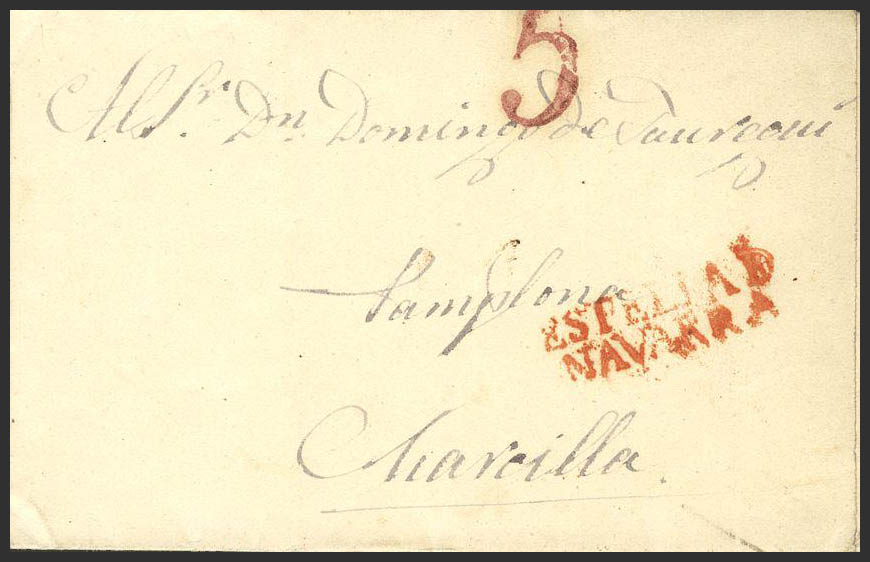 5
Al Sr. Dn. Domingo de Jaureguí
Pamplona
ESTELLA D
NAVARRA
Marcilla.